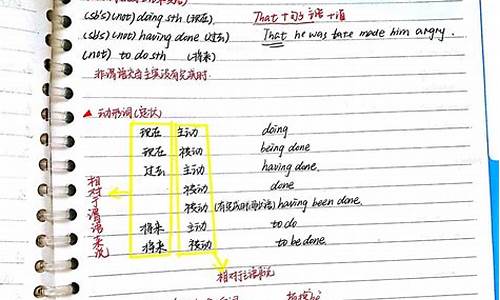 (sb's)(not) doing sth (现在) That + 句子 主语 + 谓
(sb's)(not) having done (过去) That he was late made him angry.
(not) to do sth (将来)
非谓语
▲ 动形词(定状)
现在 主动 doing
现在 被动 being done
过去 主动 having done.
被动 done
被动 (有完成时间状语) having been done.
将来 主动 to do
将来 被动 to be done.
相对于谓语来说
相对主语来说